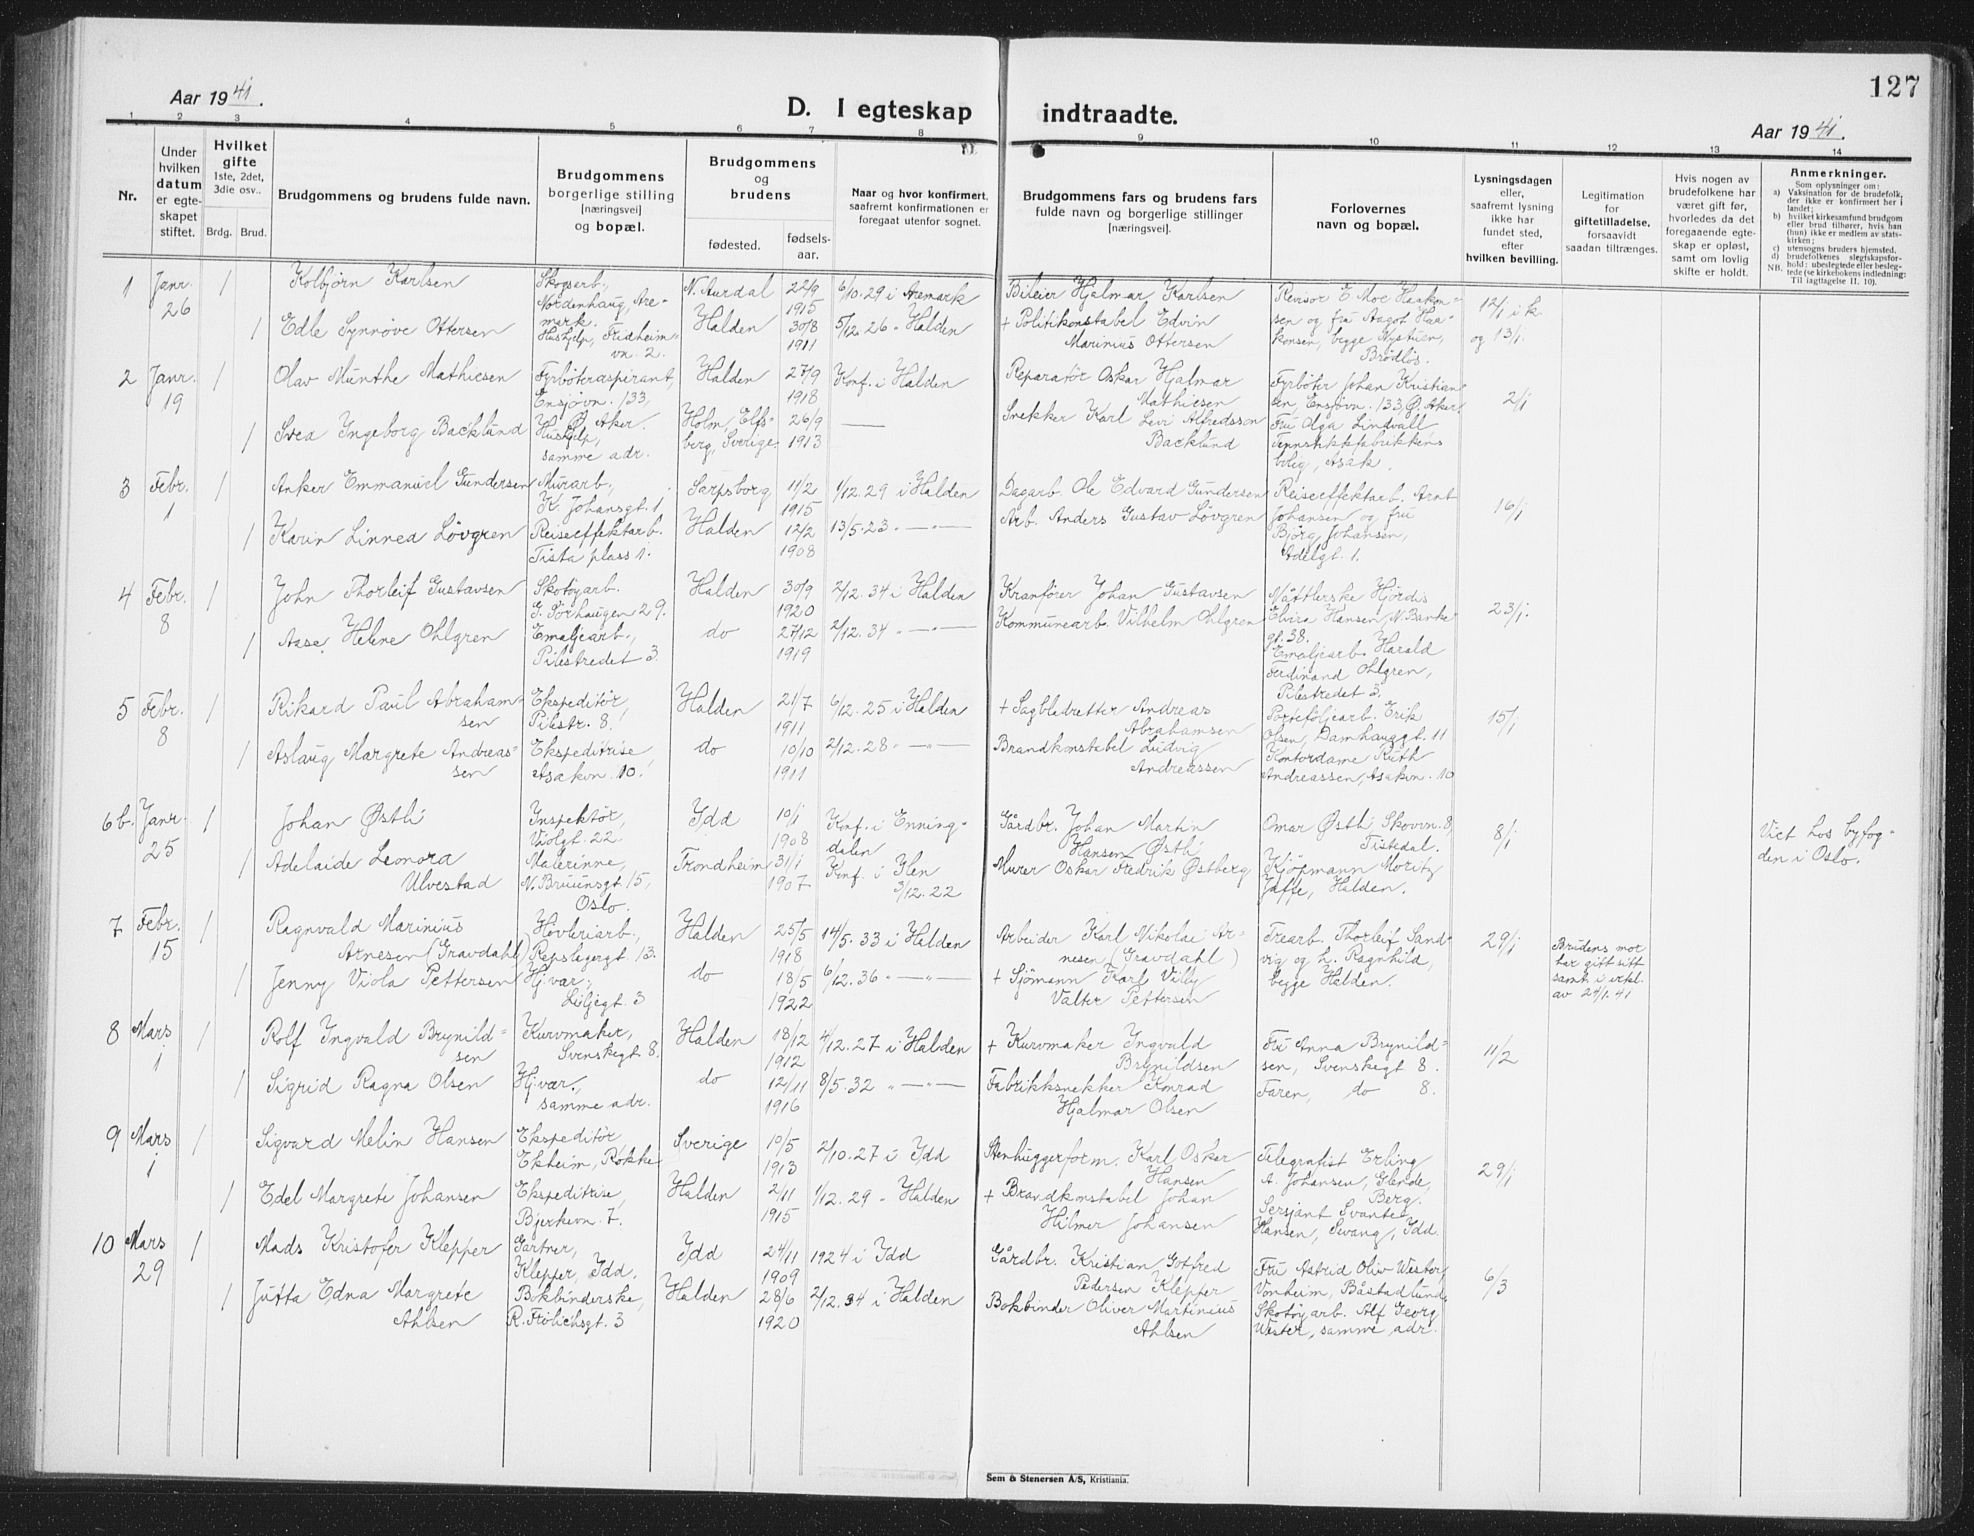 127
Aar 1941.
D. I egteskap indtraadte.
Aar 1941.
1 2 3 4 5 6 7 8 9 10 11 12 13 14
Nr.
Under hvilken datum er egteskapet stiftet.
Hvilket gifte 1ste, 2det, 3die osv..
Brdg. Brud.
Brudgommens og brudens fulde navn.
Brudgommens borgerlige stilling [næringsvei] og bopæl.
Brudgommens og brudens
fødested. fødselsaar.
Naar og hvor konfirmert, saafremt konfirmationen er foregaat utenfor sognet.
Brudgommens fars og brudens fars fulde navn og borgerlige stillinger [næringsvei].
Forlovernes navn og bopæl.
Lysningsdagen eller, saafremt lysning ikke har fundet sted, efter hvilken bevilling.
Legitimation for giftetilladelse, forsaavidt saadan tiltrænges.
Hvis nogen av brudefolkene har været gift før, hvorledes da det foregaaende egteskap er opløst, samt om lovlig skifte er holdt.
Anmerkninger.
Som oplysninger om:
a) Vaksination for de brudefolk, der ikke er konfirmert her i landet;
b) hvilket kirkesamfund brudgom eller brud tilhører, hvis han (hun) ikke er medlem av statskirken;
c) utensogns bruders hjemsted.
d) brudefolkenes slegtskapsforhold: ubeslegtede eller beslegtede (se kirkebokens indledning:
NB. Til iagttagelse II. 10).
1 Janr. 26 1 Kolbjørn Karlsen
Skogsarb., Nordenhaug, Aremark.
N. Aurdal 22/9 1915 6/10.29 i Aremark
Bileier Hjalmar Karlsen
Revisor E. Moe Haakonsen og fru Aagot Haakonsen, begge Nystuen, Brødløs.
12/1 i k. og 13/1.
1 Edle Synnøve Ottersen
Hushjelp, Fridheimvn. 2.
Halden 30/8 1911 5/12.26 " Halden
+ Politikonstabel Edvin Marinius Ottersen
2 Janr. 19 1 Olav Munthe Mathiesen
Fyrbøteraspirant, Ensjøvn. 133, Ø. Aker.
Halden 27/9 1918 Konf. i Halden
Reparatør Oskar Hjalmar Mathiesen
Fyrbøter Johan Kristiansen, Ensjøvn. 133, Ø. Aker.
2/1
1 Svea Ingeborg Backlund
Hushjelp, samme adr.
Holm, Elfsberg, Sverige. 26/9 1913 —
Snekker Karl Levi Alfredsson Backlund
Fru Olga Lindvall, bolig, Asak.
3 Febr. 1 1 Anker Emmanuel Gundersen
Murarb., K. Johansgt. 1
Sarpsborg 11/2 1915 1/12.29 i Halden
Dagarb. Ole Edvard Gundersen
Reiseeffektarb. Arnt Johansen og fru Bjørg Johansen, Adelgt. 1.
16/1
1 Karin Linnea Løvgren
Reiseeffektarb. Tista plass 1.
Halden 12/2 1908 13/5.23 " — " —
Arb. Anders Gustav Løvgren
4 Febr. 8 1 John Thorleif Gustavsen
Skotøyarb. G. Sørhaugen 29.
Halden 30/9 1920 2/12.34 i Halden
Kranfører Johan Gustavsen
Nåttlerske Hjördis Elvira Hansen, N. Bankegt. 38.
23/1.
1 Aase Helene Ohlgren
Emaljearb., Pilestredet 3.
do 27/12 1919 2/12.34 " — " —
Kommunearb. Vilhelm Ohlgren
Emaljearb. Harald Ferdinand Ohlgren, Pilestredet 3.
5 Febr. 8 1 Rikard Paul Abrahamsen
Ekspeditør, Pilestr. 8.
Halden 21/7 1911 6/12.25 i Halden
+ Sagbladretter Andreas Abrahamsen
Porteføljearb. Erik Olsen, Damhauggt. 11
15/1
1 Aslaug Margrete Andreassen
Ekspeditrise, Asakvn. 10.
do 10/10 1911 2/12.28 " — " —
Brandkonstabel Ludvig Andreassen
Kontordame Ruth Andreassen, Asakvn. 10
6 b. Janr. 25 1 Johan Østli
Inspektør, Violgt. 22.
Idd 10/1 1908 Konf. i Enningdalen
Gårdbr. Johan Martin Hansen Østli
Omar Østli, Skovvn. 8, Tistedal.
8/1
Viet hos byfogden i Oslo.
1 Adelaide Leonora Ulvestad
Malerinne, N. Bruunsgt. 15, Oslo.
Trondheim 31/1 1907 Konf. i Glen 3/12.22
Murer Oskar Fredrik Østberg
Kjøpmann Moritz Jaffe, Halden.
7 Febr. 15 1 Ragnvald Marinius Arnesen (Gravdahl)
Høvleriarb., Repslagergt. 13.
Halden 25/5 1918 14/5.33 i Halden
Arbeider Karl Nikolai Arnesen (Gravdahl)
Trearb. Thorleif Sandvig og h. Ragnhild, begge Halden.
29/1
Brudens mor har gitt sitt samt. i erkl. av 24/1.41
1 Jenny Viola Pettersen
Hj.vær., Liljegt. 3
do 18/5 1922 6/12.36 " — " —
+ Sjømann Karl Villy Valter Pettersen
8 Mars 1 1 Rolf Ingvald Brynildsen
Kurvmaker, Svenskegt 8.
Halden 18/12 1912 4/12.27 i Halden
+ Kurvmaker Ingvald Brynildsen
Fru Anna Brynildsen, Svenskegt 8.
11/2
1 Sigrid Ragna Olsen
Hj.vær., samme adr.
do 12/11 1916 8/5.32 " — " —
Fabrikksnekker Konrad Hjalmar Olsen
Faren, do 8.
9 Mars 1 1 Sigvard Melin Hansen
Ekspeditør Ekheim, Rokke
Sverige 10/5 1913 2/10.27 i Idd
Stenhuggerform. Karl Oskar Hansen
Telegrafist Erling A. Johansen, Glende, Berg.
29/1
1 Edel Margrete Johansen
Ekspeditrise, Bjerkevn. 7.
Halden 2/11 1915 1/12.29 " Halden
+ Brandkonstabel Johan Hilmer Johansen
Sersjant Svante Hansen, Svang, Idd.
10 Mars 29 1 Mads Kristofer Klepper
Gartner, Klepper, Idd.
Idd 24/11 1909 1924 i Idd
Gårdbr. Kristian Gotfred Pedersen Klepper
Fru Astrid Oliv Wester, Vonheim, Båstadlund
6/3
1 Jutta Edna Margrete Ahlsen
Bokbinderske, R. Frølichsgt. 3
Halden 28/6 1920 2/12.34 i Halden
Bokbinder Oliver Martinius Ahlsen
Skotøyarb. Alf Georg Wester, samme adr.
Sem & Stenersen A/S, Kristiania.